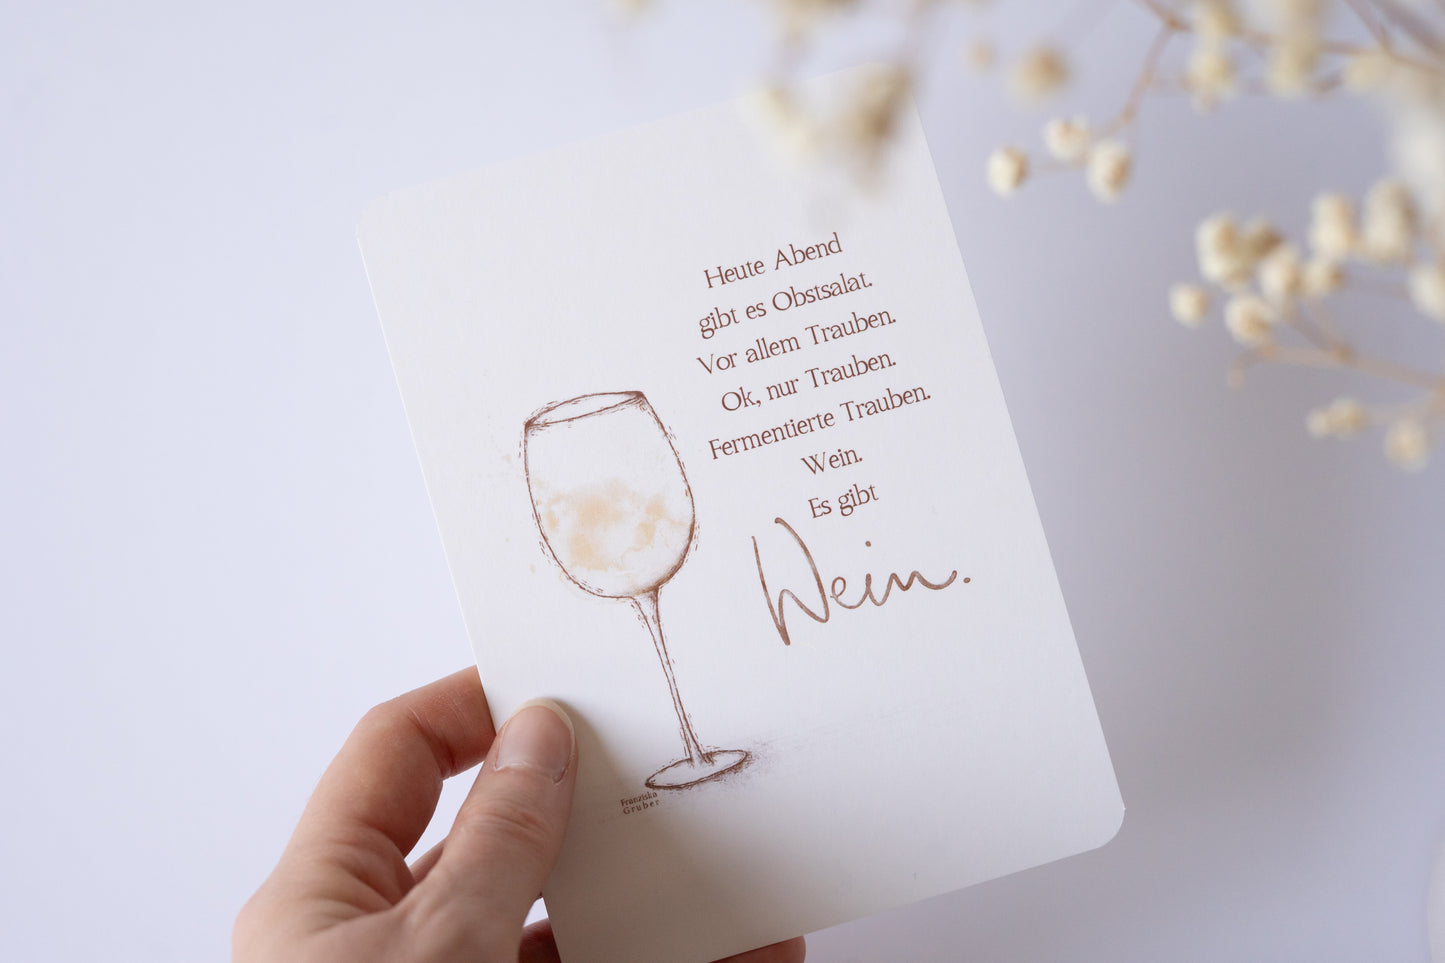 Heute Abend
gibt es Obstsalat.
Vor allem Trauben.
Ok, nur Trauben.
Fermentierte Trauben.
Wein.
Es gibt
Wein.
Franziska
Gruber